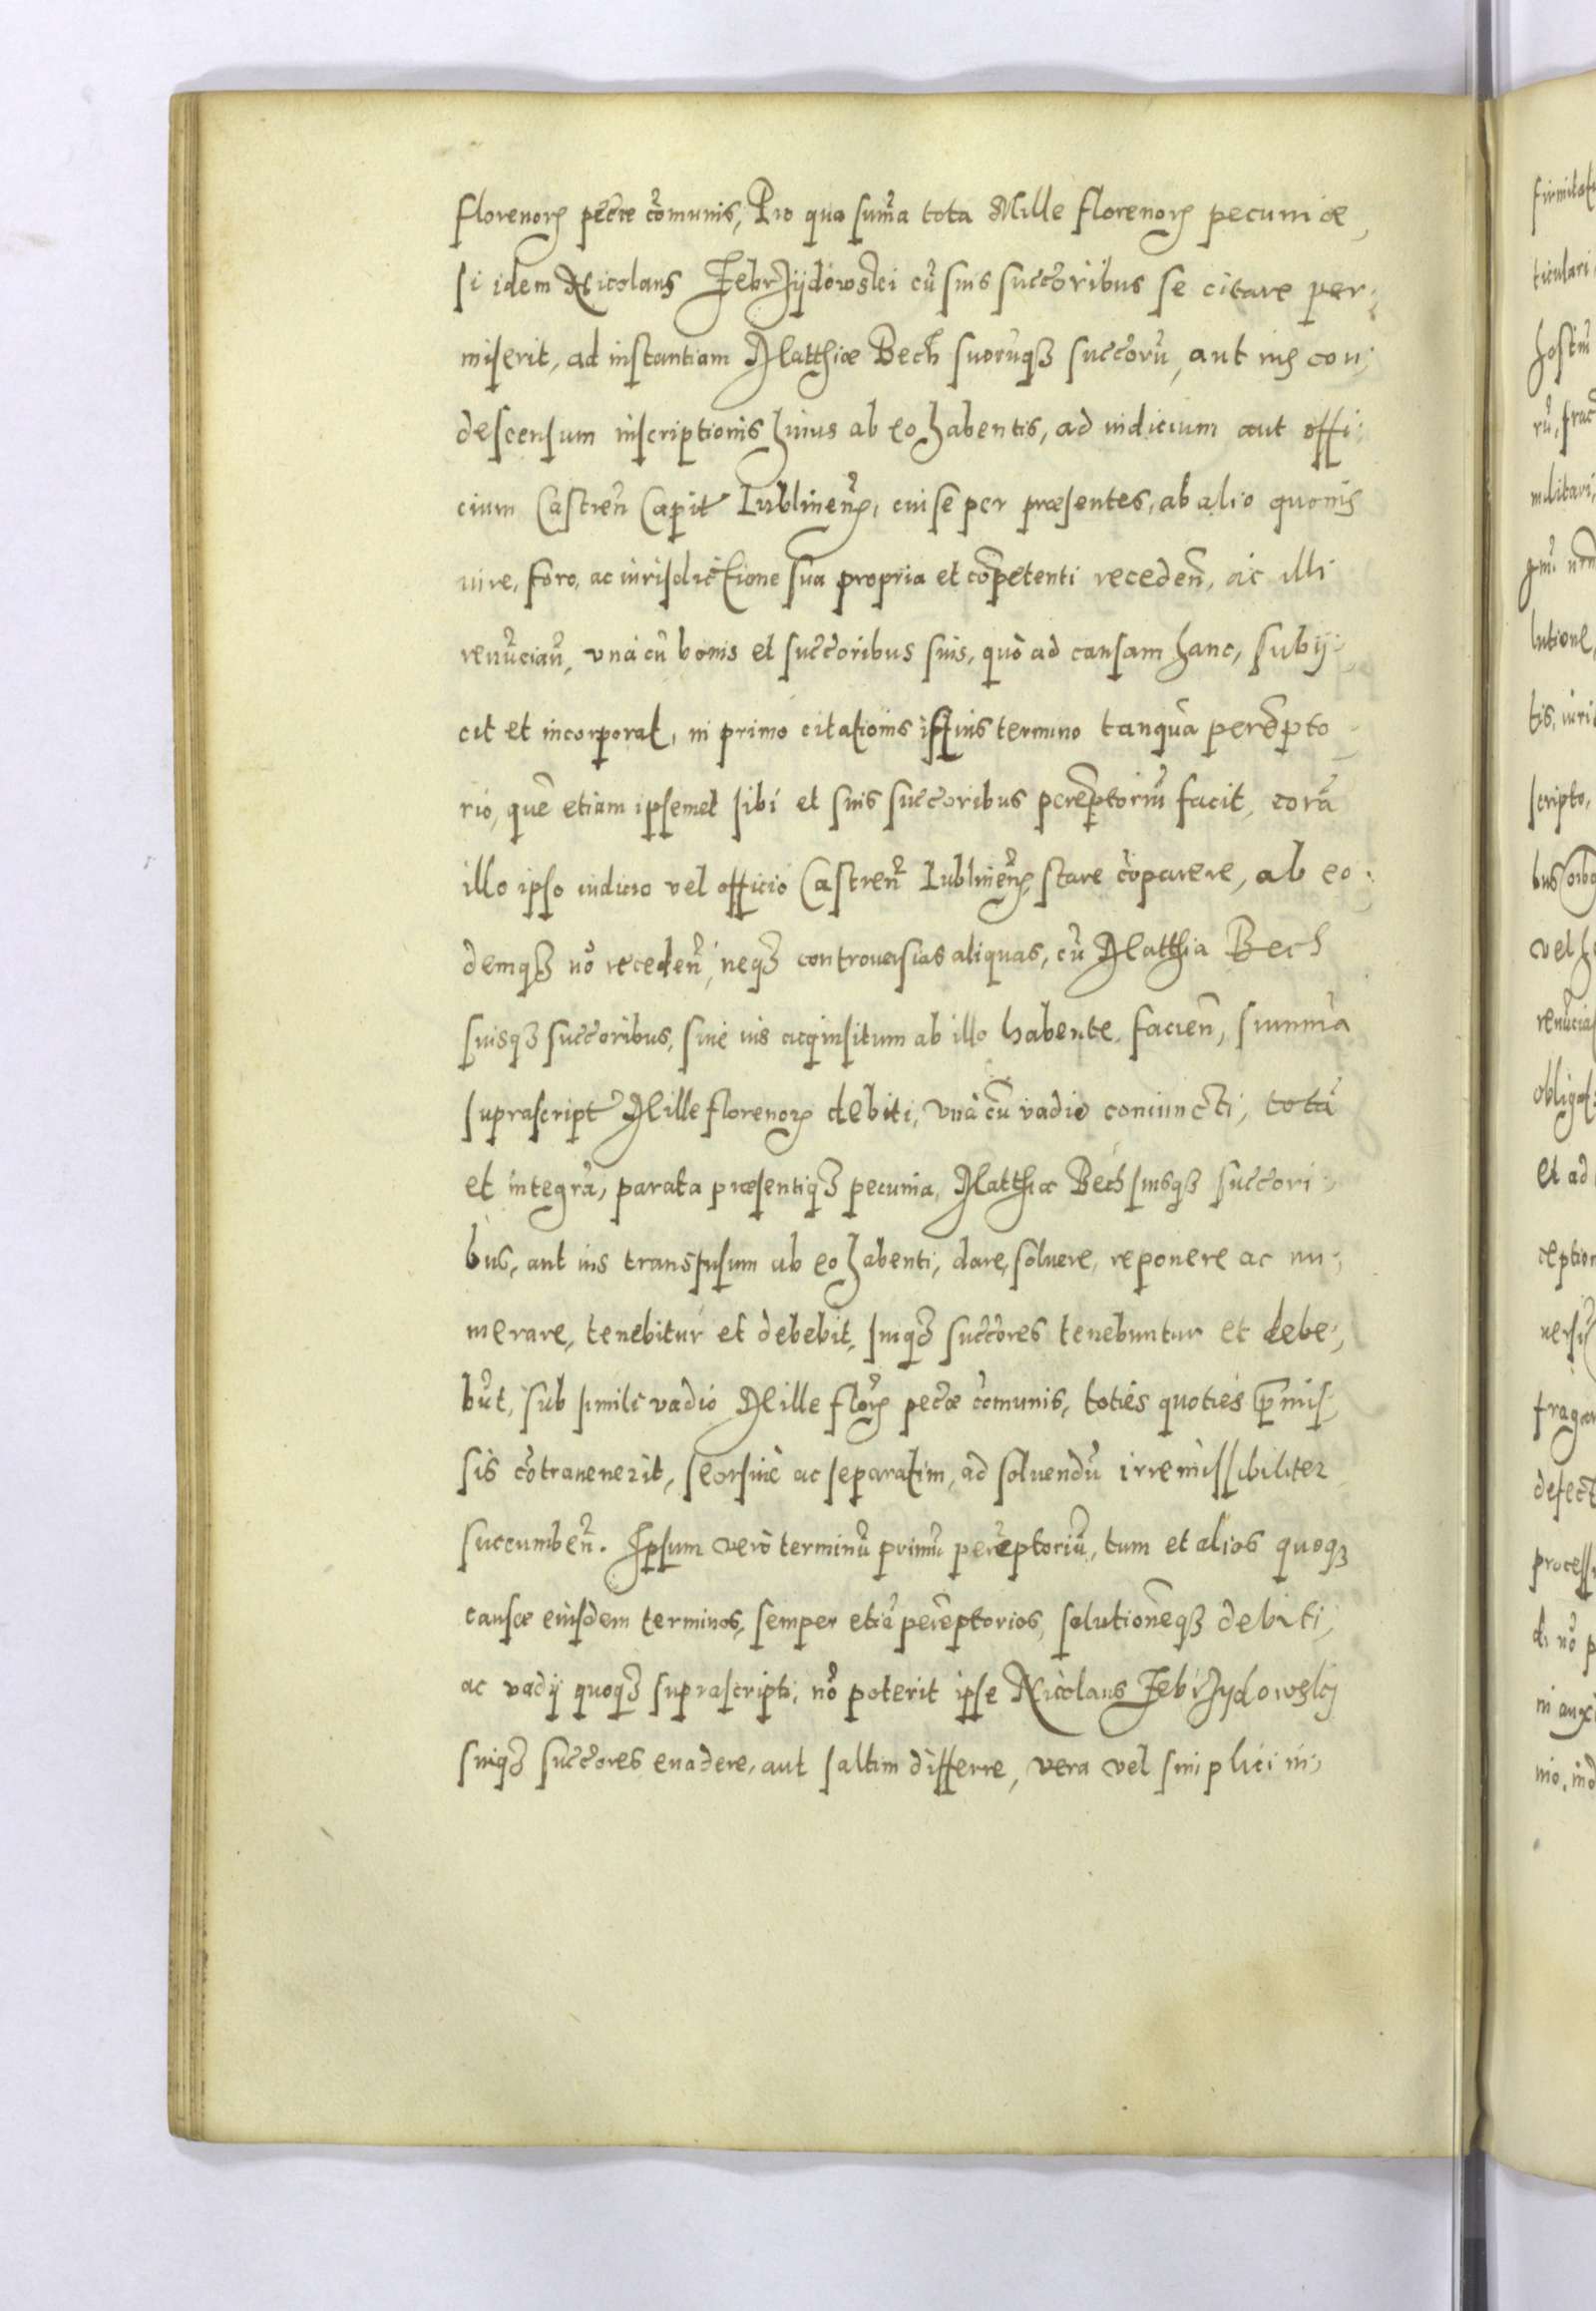 florenorꝝ pecūe cōmunis, Pro qua sum̃a tota Mille florenorꝝ pecuniæ,
si idem Nicolaus Zebrzijdowski cū suis succ̃oribus se citare per-
miserit, ad instantiam Matthiæ Bech suorūqꝫ succ̃orū, aut ius con-
descensum inscriptionis huius ab eo habentis, ad iudicium aut offi-
cium Castreñ Capit Lublineñ, cui se per præsentes, ab alio quouis
iure, foro, ac iurisdictione sua propria et cōpetenti recedeñ, ac illi
renūciañ, vnà cū bonis et succ̃oribus suis, quò ad causam hanc, subij-
cit et incorporat, in primo citationis istius termino tanquā perēpto-
rio, quē etiam ipsemet sibi et suis succ̃oribus perēptoriū facit, corā
illo ipso iudicio vel officio Castreñ Lublineñ, stare cōparere, ab eo-
demqꝫ nō recedeñ, neqꝫ controuersias aliquas, cū Matthia Bech
suisqꝫ succ̃oribus, siue ius acquisitum ab illo habente facieñ, summā
suprascript Mille florenorꝝ debiti, vnà cū vadio coniuncti, totā
et integrā, parata præsentiqꝫ pecunia, Matthiæ Bech suisqꝫ succ̃ori-
bus, aut ius transfusum ab eo habenti, dare, soluere, reponere ac nu-
merare, tenebitur et debebit, suiqꝫ succ̃ores tenebuntur et debe-
būt, sub simili vadio Mille florꝝ pecūæ cōmunis, toties quoties p̄mis-
sis cōtrauenerit, seorsiuè ac separatim, ad soluendū irremissibiliter
succumbeñ. Ipsum verò terminū primū perēptoriū, tum et alios quoqꝫ
causæ eiusdem terminos, semper etiā perēptorios, solutionēqꝫ debiti,
ac vadij quoqꝫ suprascripti, nō poterit ipse Nicolaus Zebrzydowskj
suiqꝫ succ̃ores euadere, aut saltim differre, vera vel simplici in-